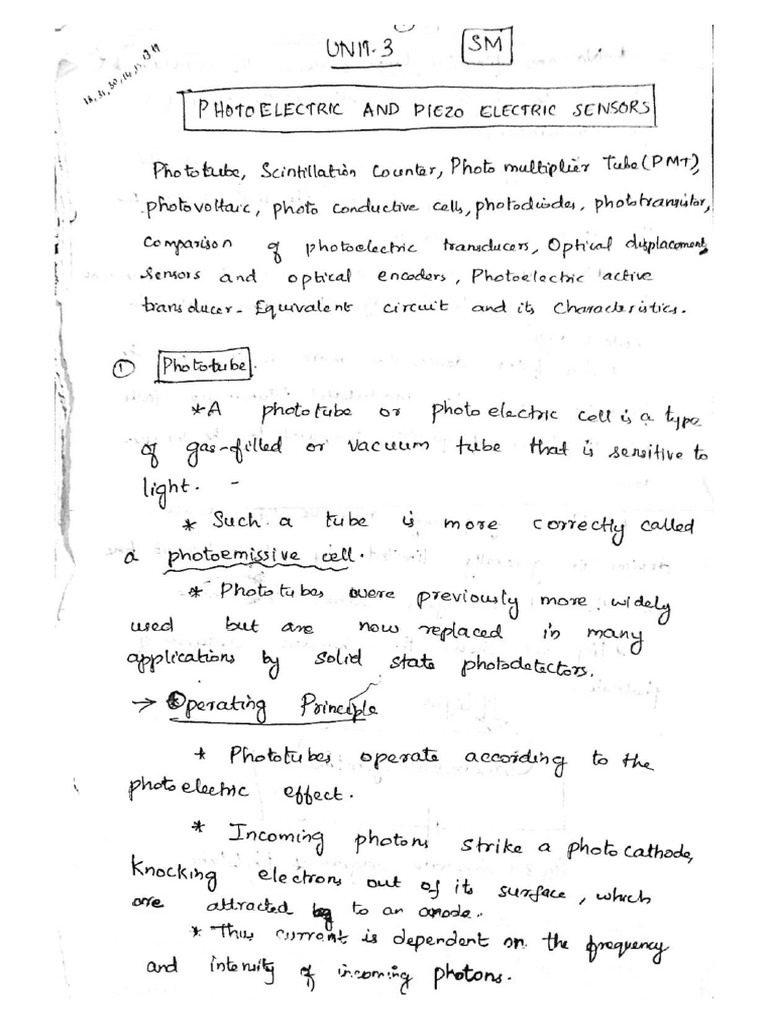 ①
UNIT-3
SM
PHOTOELECTRIC AND PIEZO ELECTRIC SENSORS
Phototube, Scintillation Counter, Photo multiplier Tube (PMT),
photovoltaic, photo conductive cells, photodiodes, phototransistor,
Comparison of photoelectric transducers, Optical displacement
sensors and optical encoders, Photoelectric active
transducer - Equivalent circuit and its Characteristics.
① Phototube.
* A phototube or photo electric cell is a type
of gas-filled or vacuum tube that is sensitive to
light. -
* Such a tube is more correctly called
a photoemissive cell.
* Phototubes were previously more widely
used but are now replaced in many
applications by solid state photodetectors.
→ Operating Principle
* Phototubes operate according to the
photoelectric effect.
* Incoming photons strike a photocathode,
knocking electrons out of its surface, which
are attracted to an anode.
* Thus current is dependent on the frequency
and intensity of incoming photons.